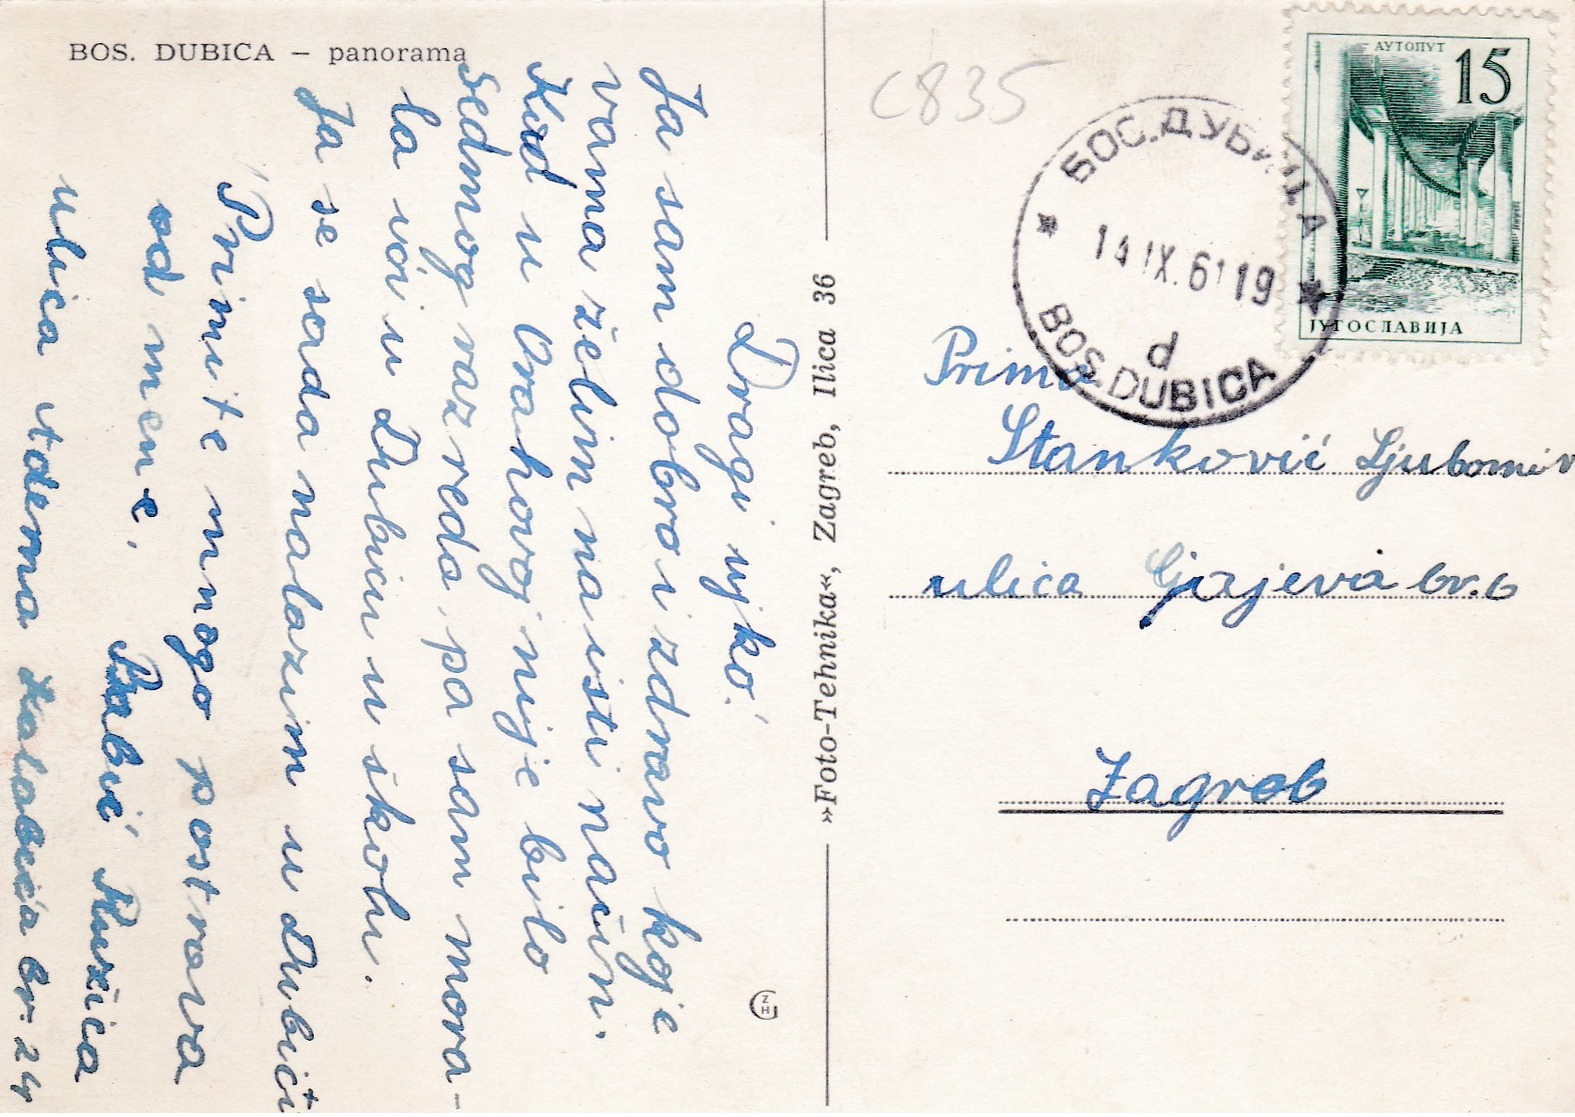 BOS. DUBICA – panorama
Dragi ujko!
Ja sam dobro i zdravo koje
vama želim na isti način.
Kod u Orahovoj nije bilo
sedmog razreda, pa sam mora-
la ići u Dubicu u školu.
Ja se sada nalazim u Dubici
Primite mnogo postrava
od mene.
Babić Ružica
ulica
br. 24
»Foto-Tehnika«, Zagreb, Ilica 36
ZH
C835
АУТОПУТ
15
ЈУГОСЛАВИЈА
БОС. ДУБИЦА
14 IX. 61 19
d
BOS. DUBICA
Prima
Stanković Ljubomir
ulica Gajeva br. 6
Zagreb